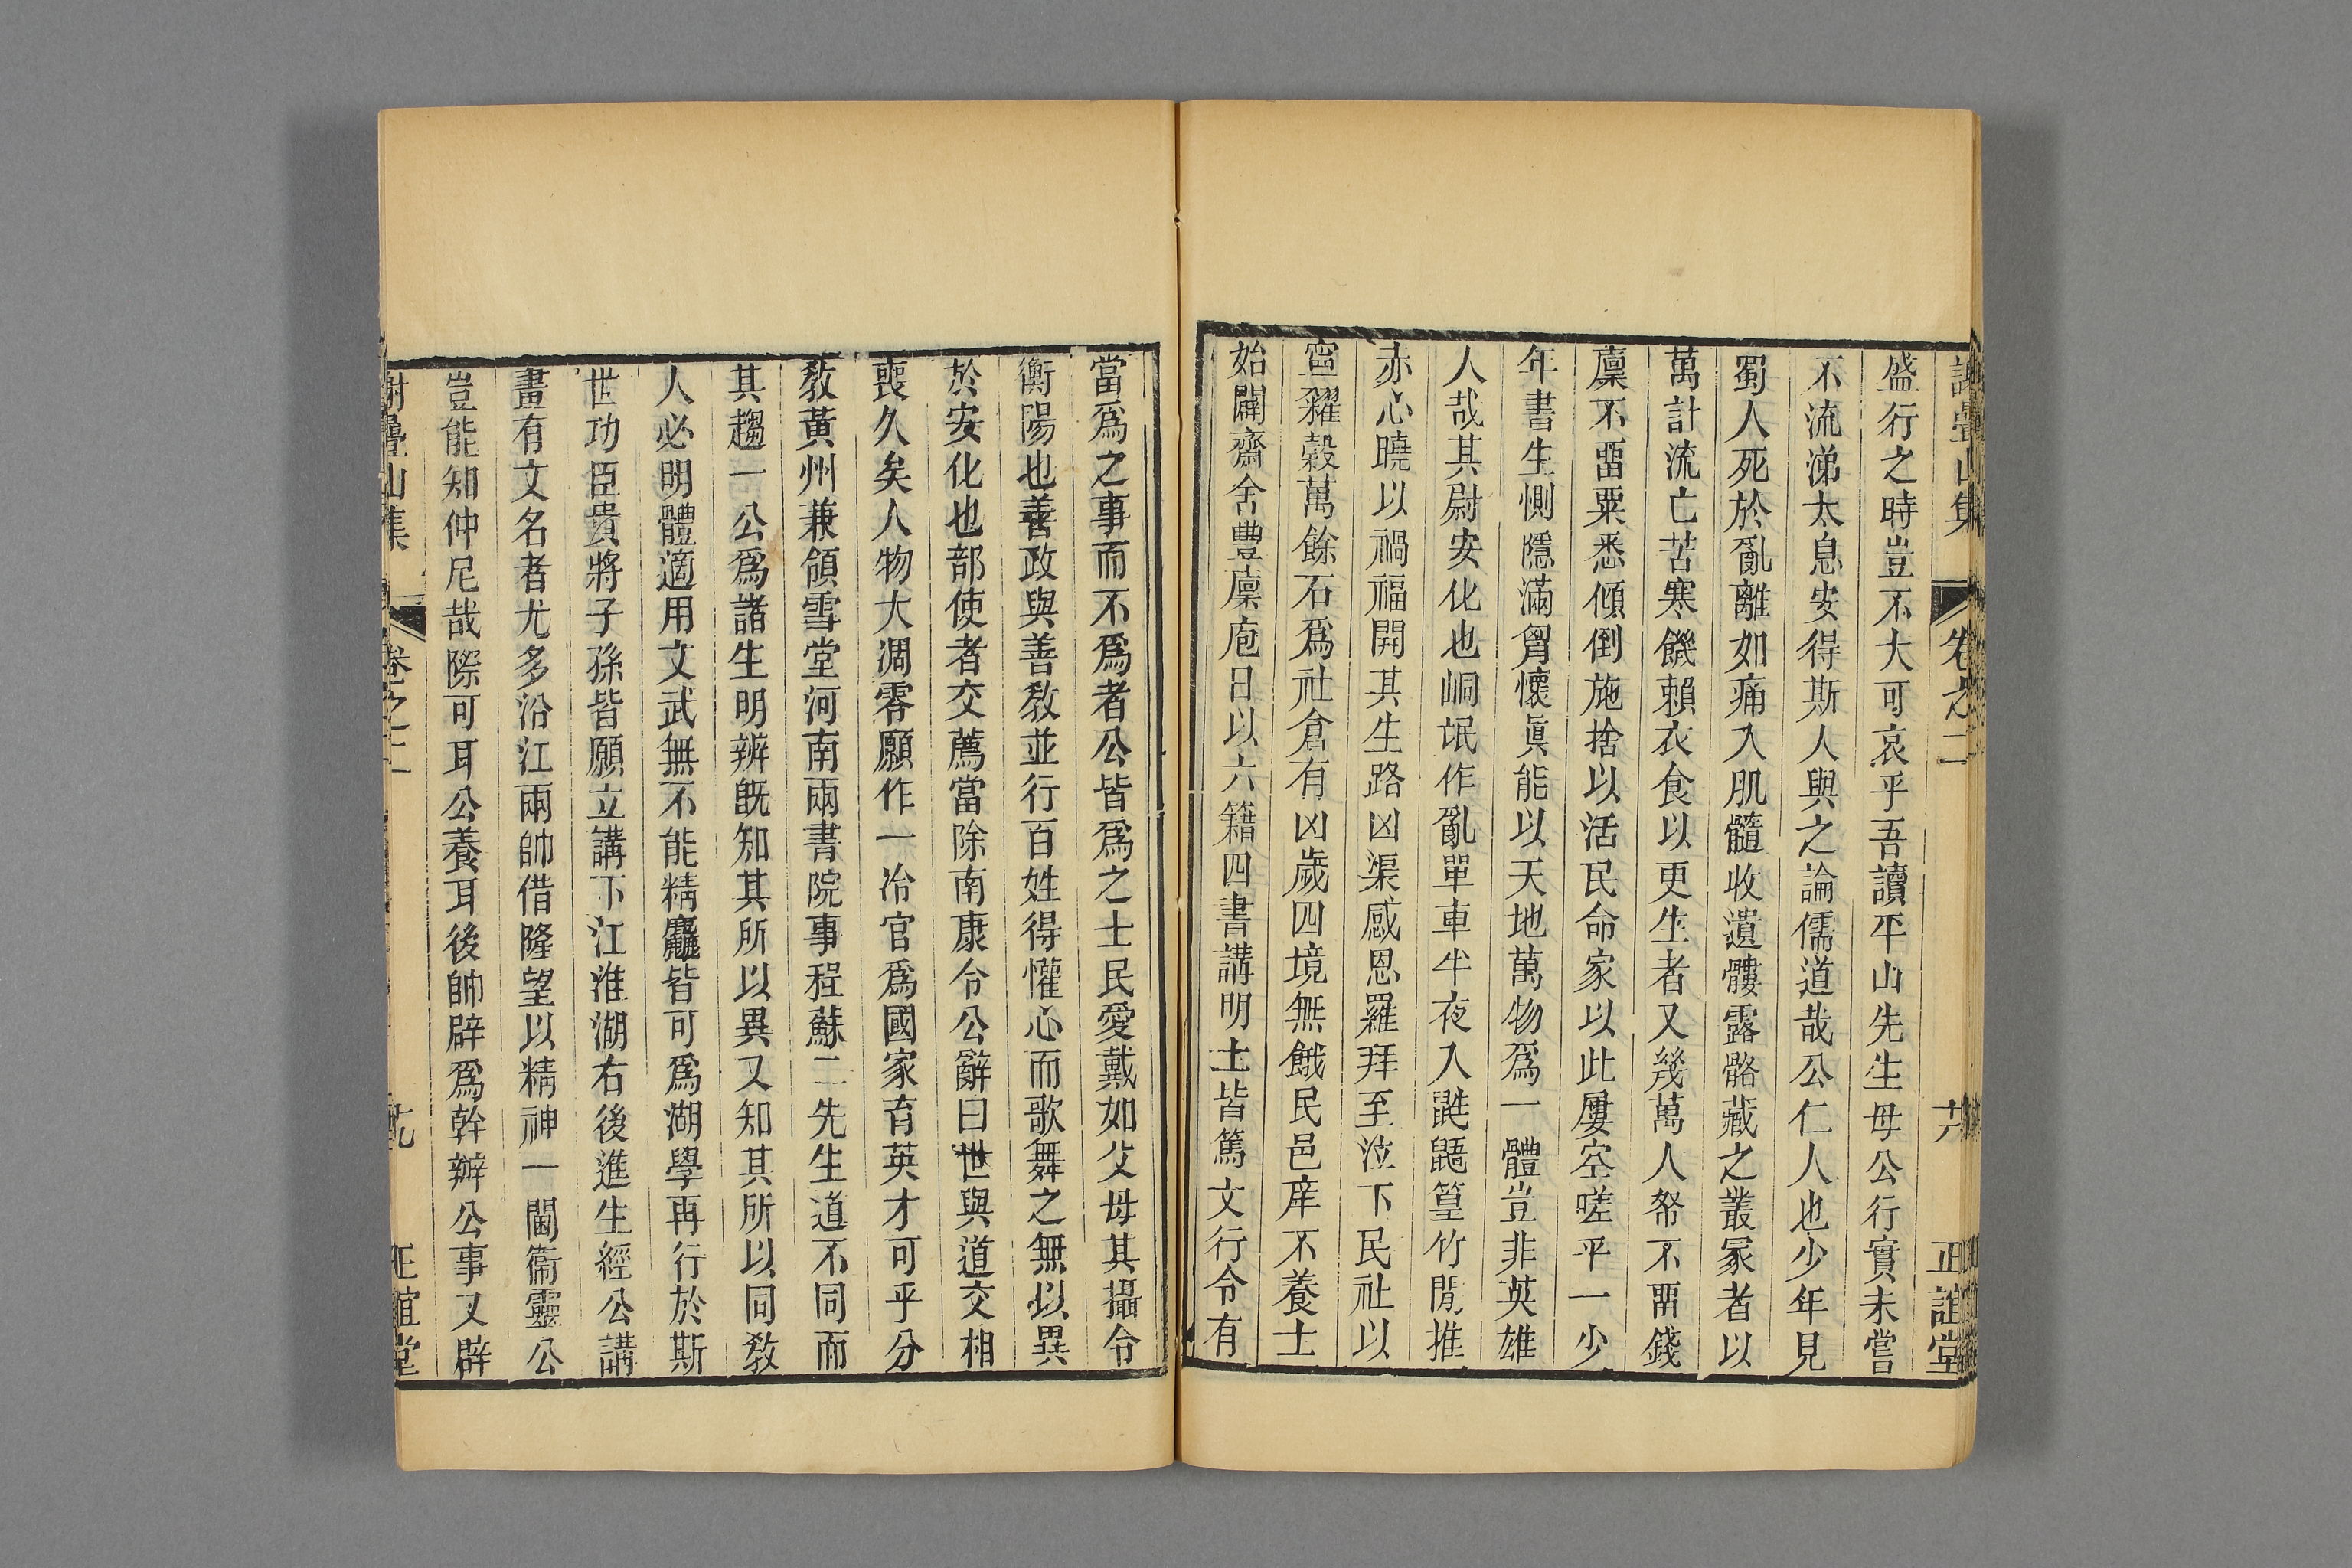 謝疊山集 卷之二 六 正誼堂
盛行之時豈不大可哀乎吾讀平山先生母公行實未嘗
不流涕太息安得斯人與之論儒道哉公仁人也少年見
蜀人死於亂離如痛入肌髓收遺髏露骼藏之叢冢者以
萬計流亡苦寒饑賴衣食以更生者又幾萬人帑不畱錢
廩不畱粟悉傾倒施捨以活民命家以此屢空嗟乎一少
年書生惻隱滿胷懷眞能以天地萬物爲一體豈非英雄
人哉其尉安化也峒氓作亂單車半夜入鼪鼯篁竹閒推
赤心曉以禍福開其生路凶渠感恩羅拜至泣下民社以
寍糴穀萬餘石爲社倉有凶歲四境無餓民邑庠不養士
始闢齋舍豐廩庖日以六籍四書講明士皆篤文行令有
當爲之事而不爲者公皆爲之士民愛戴如父母其攝令
衡陽也善政與善敎並行百姓得懽心而歌舞之無以異
於安化也部使者交薦當除南康令公辭曰世與道交相
喪久矣人物大凋零願作一冷官爲國家育英才可乎分
敎黃州兼領雪堂河南兩書院事程蘇二先生道不同而
其趨一公爲諸生明辨旣知其所以異又知其所以同敎
人必明體適用文武無不能精麤皆可爲湖學再行於斯
世功臣貴將子孫皆願立講下江淮湖右後進生經公講
畫有文名者尤多沿江兩帥借隆望以精神一閫衞靈公
豈能知仲尼哉際可耳公養耳後帥辟爲幹辦公事又辟
謝疊山集 卷之二 九 正誼堂